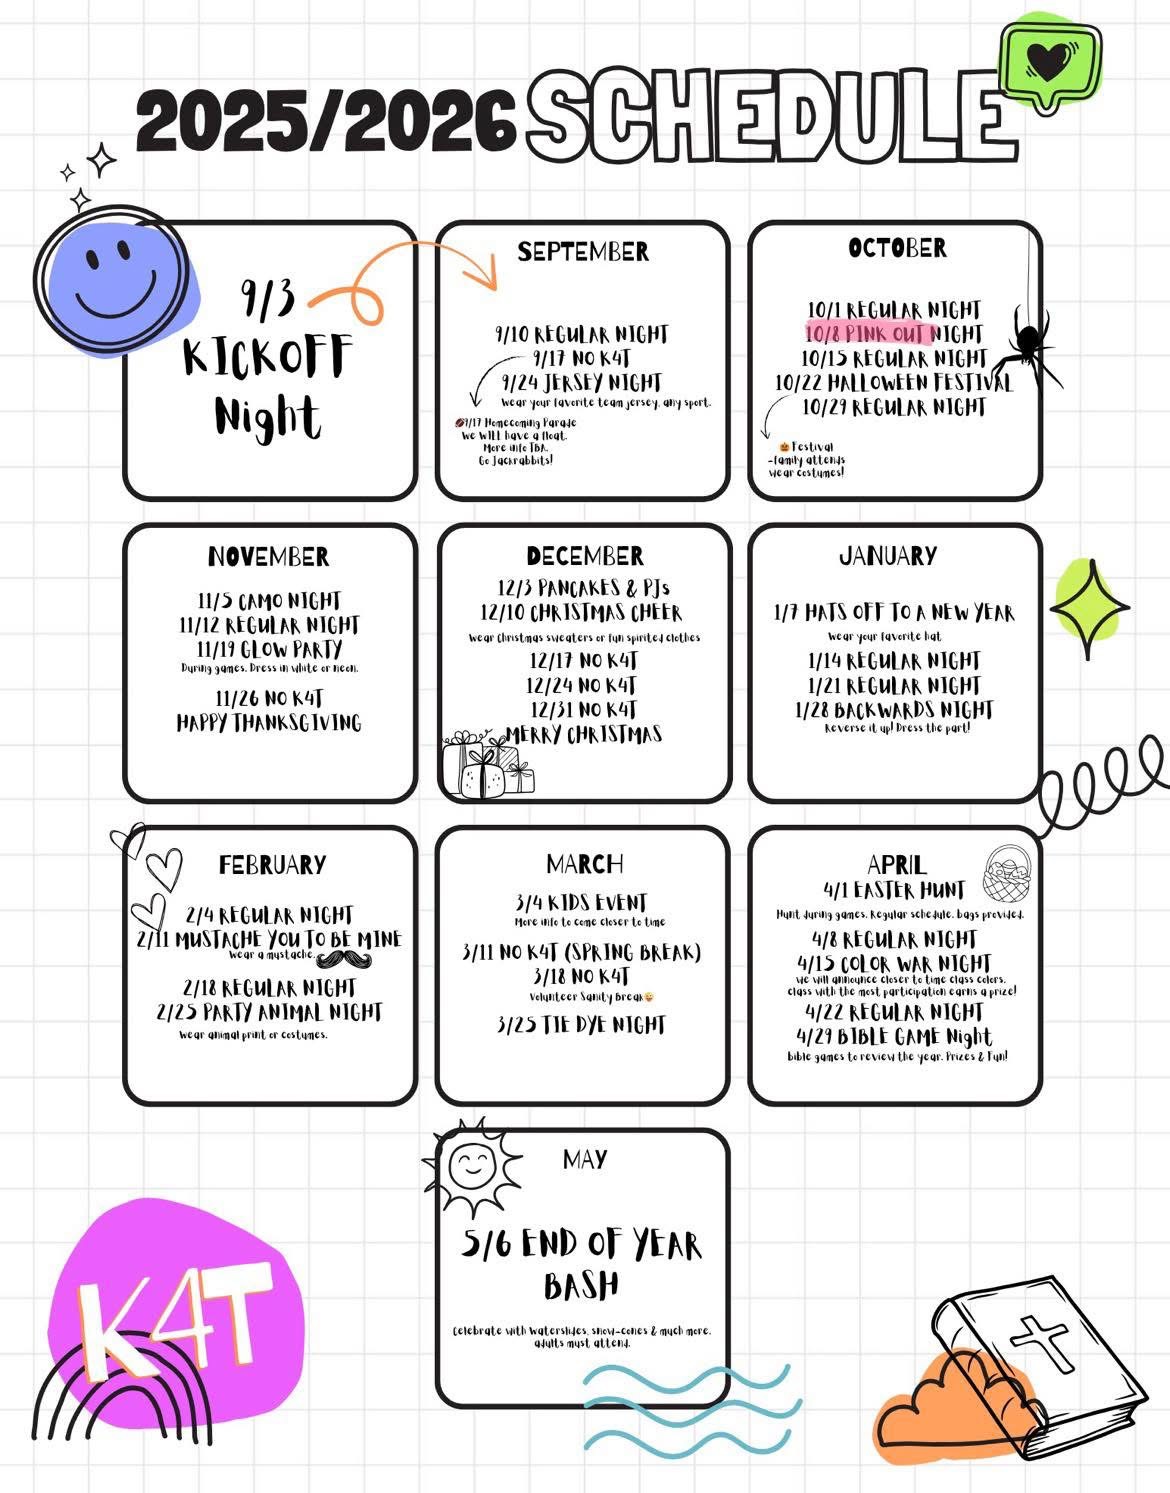 2025/2026 SCHEDULE
9/3
KICKOFF
Night
SEPTEMBER
9/10 REGULAR NIGHT
9/17 NO K4T
9/24 JERSEY NIGHT
Wear your favorite team jersey, any sport.
🏈9/17 Homecoming Parade
We WILL have a float.
More info TBA.
Go Jackrabbits!
OCTOBER
10/1 REGULAR NIGHT
10/8 PINK OUT NIGHT
10/15 REGULAR NIGHT
10/22 HALLOWEEN FESTIVAL
10/29 REGULAR NIGHT
🎃 Festival
-family attends
wear costumes!
NOVEMBER
11/5 CAMO NIGHT
11/12 REGULAR NIGHT
11/19 GLOW PARTY
During games. Dress in white or neon.
11/26 NO K4T
HAPPY THANKSGIVING
DECEMBER
12/3 PANCAKES & PJs
12/10 CHRISTMAS CHEER
Wear Christmas sweaters or fun spirited clothes
12/17 NO K4T
12/24 NO K4T
12/31 NO K4T
MERRY CHRISTMAS
JANUARY
1/7 HATS OFF TO A NEW YEAR
Wear your favorite hat
1/14 REGULAR NIGHT
1/21 REGULAR NIGHT
1/28 BACKWARDS NIGHT
Reverse it up! Dress the part!
FEBRUARY
2/4 REGULAR NIGHT
2/11 MUSTACHE YOU TO BE MINE
Wear a mustache.
2/18 REGULAR NIGHT
2/25 PARTY ANIMAL NIGHT
Wear animal print or costumes.
MARCH
3/4 KIDS EVENT
More info to come closer to time
3/11 NO K4T (SPRING BREAK)
3/18 NO K4T
Volunteer Sanity Break😜
3/25 TIE DYE NIGHT
APRIL
4/1 EASTER HUNT
Hunt during games. Regular schedule, bags provided.
4/8 REGULAR NIGHT
4/15 COLOR WAR NIGHT
We will announce closer to time class colors.
class with the most participation earns a prize!
4/22 REGULAR NIGHT
4/29 BIBLE GAME Night
bible games to review the year. Prizes & Fun!
MAY
5/6 END OF YEAR
BASH
Celebrate with waterslides, snow-cones & much more.
adults must attend.
K4T